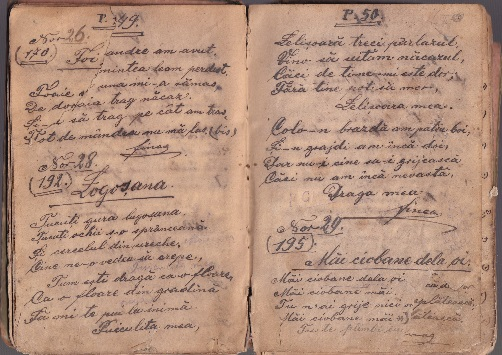 P. 49.
Nor 26.
(170) Foi, andre am avut,
mintea leam perdut,
una mi-a rămas
De dogaia trag năcaz.
Și să trag pe cât am tras
Tot de mândra nu mă las (bis)
finag
Nor 28.
(192.) Logosana.
gură lugoșana,
ochii și-o sprânceană
Și cercelul din ureche,
Cine ne-o vedea să crepe,
Tum ești dragă ca o floare,
Ca o floare din gradină
Să mi te pui la inimă
Puiculița mea,
P. 50.
Lelișoară treci pârlazul,
Vino să uităm năcazul,
Căci de tine-mi este dor,
Fără tine pot să mor,
Lelișoara mea.
Colo-n boardă am patru boi,
Și-n grajdi am încă doi,
Dar nu-i cine să-i grijească
Căci nu am încă nevastă,
Draga mea
finea
Nor 29.
(195)
Măi ciobane dela oi.
Măi ciobane dela oi
Măi ciobane măi
Tu n-ai grije nici
Măi ciobane măi